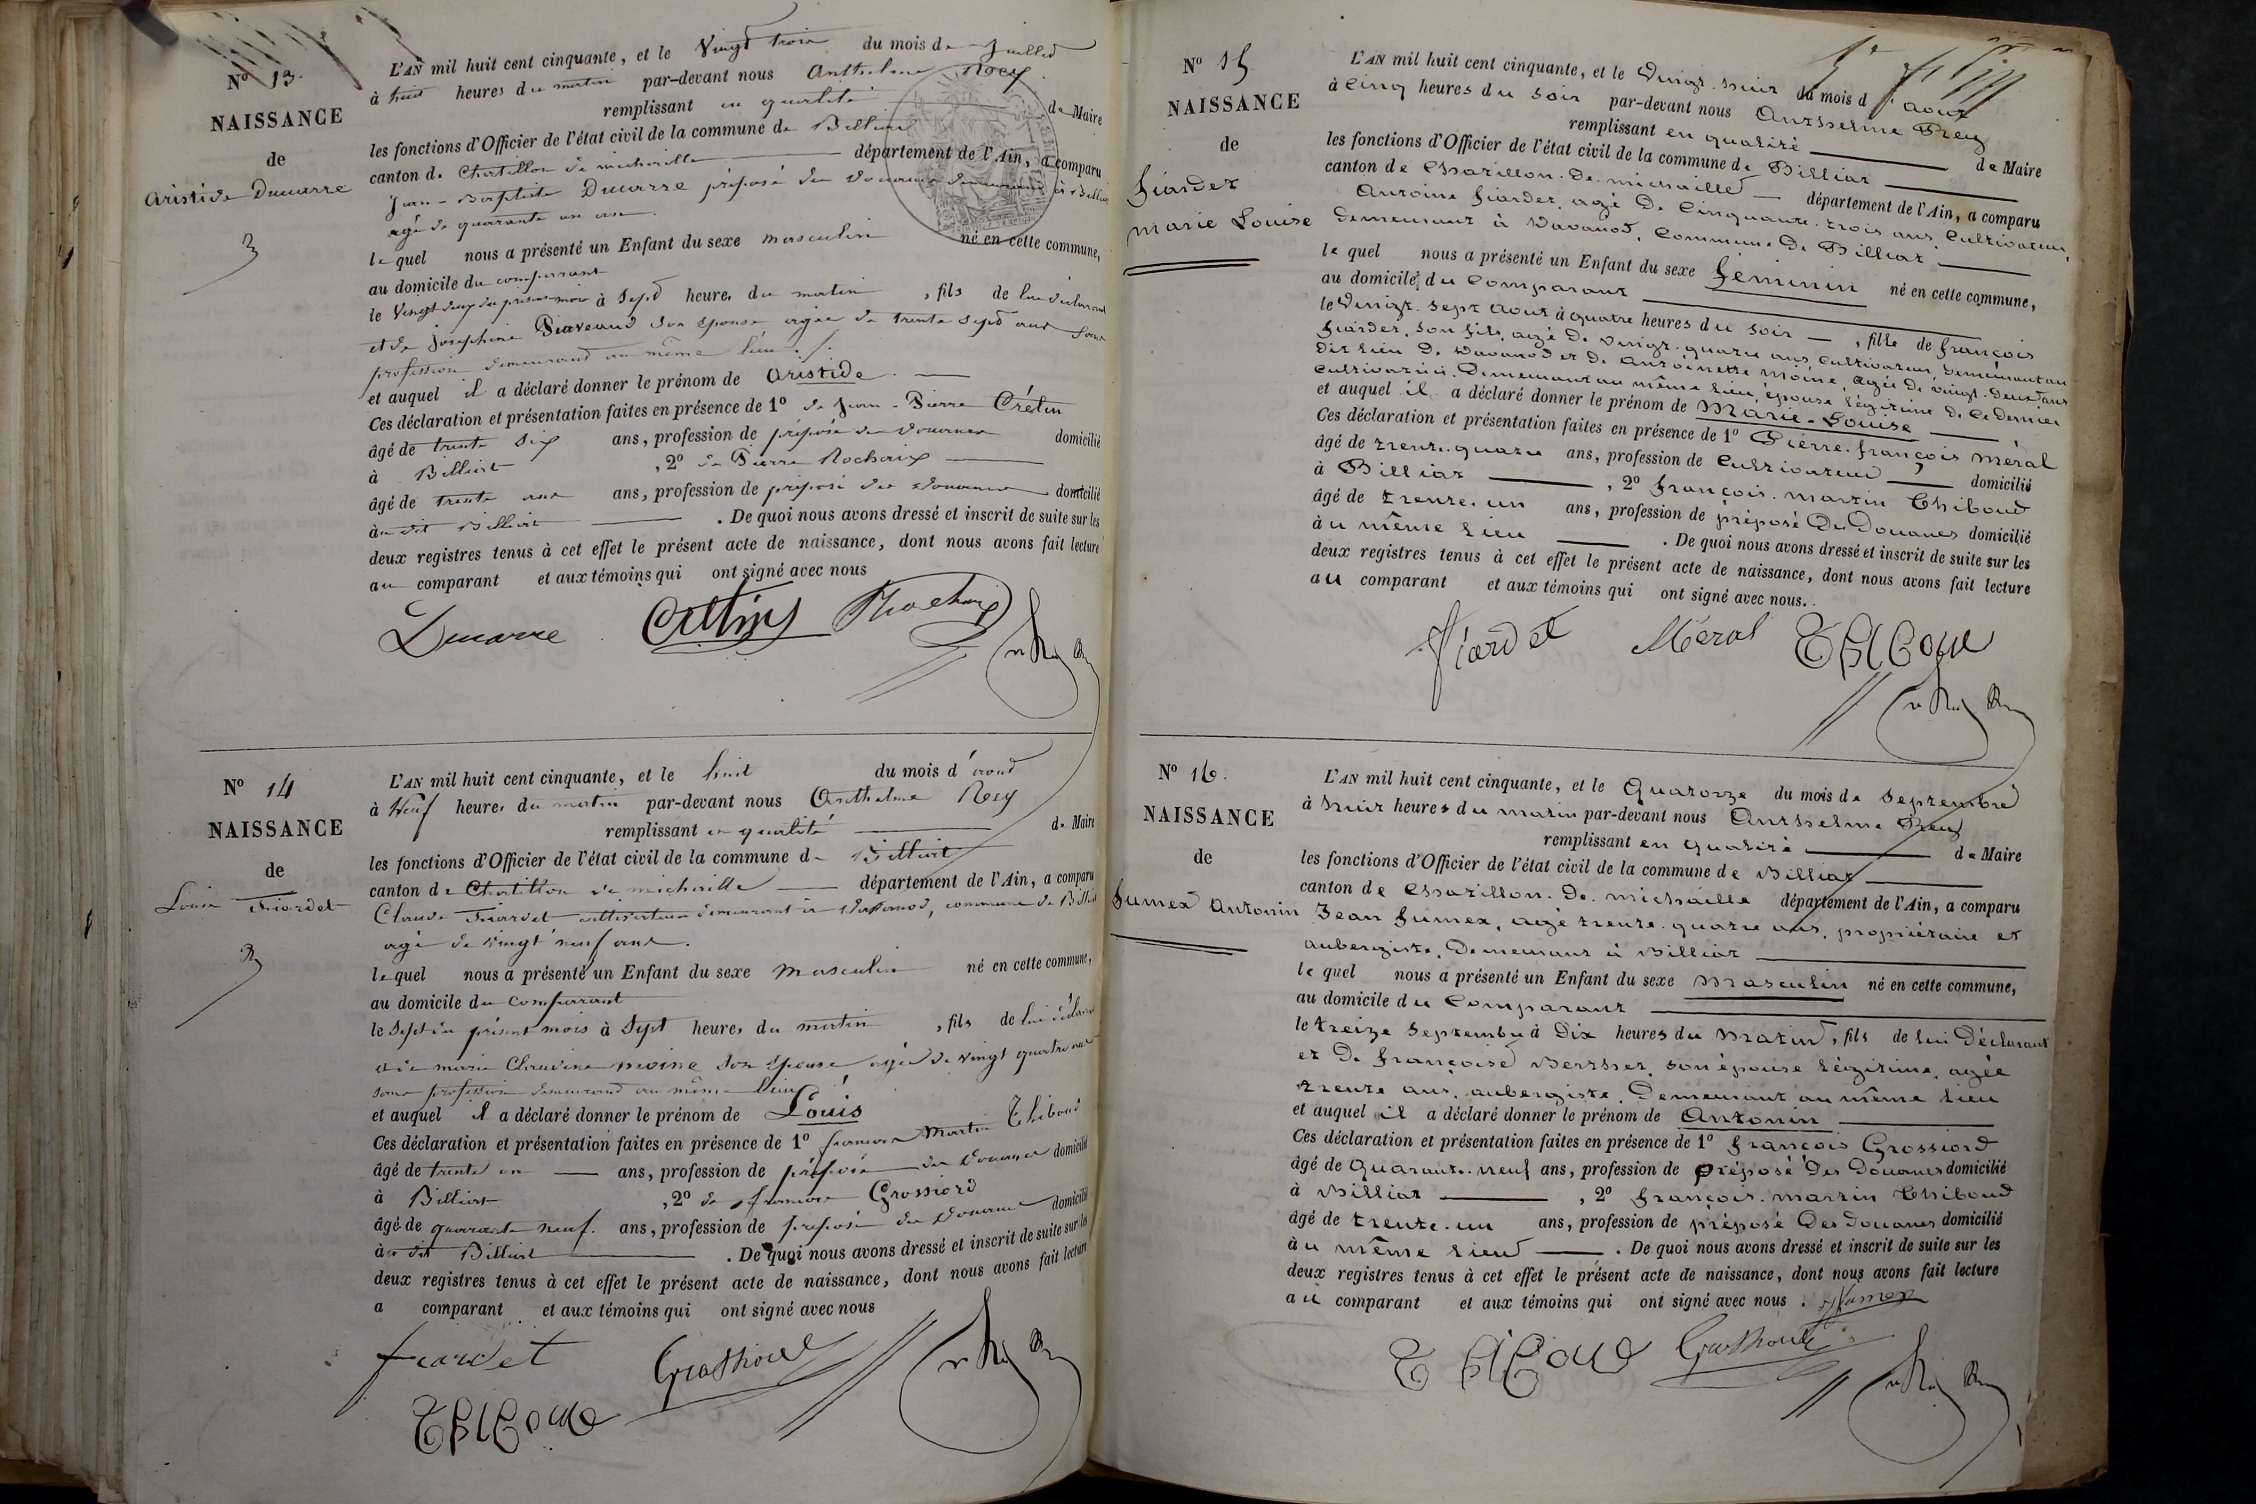 N° 13.
NAISSANCE
de
Aristide Ducarre
3
L'AN mil huit cent cinquante, et le Vingt trois du mois de Juillet
à huit heures du matin par-devant nous Anthelme Rey
remplissant en qualité de Maire
les fonctions d'Officier de l'état civil de la commune de Billiat
canton de Chatillon de michaille département de l'Ain, a comparu
Jean-Baptiste Ducarre préposé des Douanes demeurant à Billiat
agé de quarante un ans.
lequel nous a présenté un Enfant du sexe masculin né en cette commune,
au domicile du comparant
le Vingt deux du présent mois à Sept heures du matin, fils de lui déclarant
et de Joséphine son épouse agée de trente sept ans sans
profession demeurant au même lieu
et auquel il a déclaré donner le prénom de Aristide.
Ces déclaration et présentation faites en présence de 1° de Jean-Pierre Crétin
âgé de trente six ans, profession de préposé des Douanes domicilié
à Billiat, 2° de Pierre Rochaix
âgé de trente ans, profession de préposé des Douanes domicilié
à dit Billiat. De quoi nous avons dressé et inscrit de suite sur les
deux registres tenus à cet effet le présent acte de naissance, dont nous avons fait lecture
au comparant et aux témoins qui ont signé avec nous
Ducarre Crétin Rochaix
N° 14
NAISSANCE
de
Louis Fiardet
3
L'AN mil huit cent cinquante, et le huit du mois d'aout
à Neuf heures du matin par-devant nous Anthelme Rey
remplissant en qualité de Maire
les fonctions d'Officier de l'état civil de la commune de Billiat
canton de Chatillon de michaille département de l'Ain, a comparu
Claude Fiardet cultivateur demeurant à Davanod, commune de Billiat
agé de vingt neuf ans.
lequel nous a présenté un Enfant du sexe masculin né en cette commune,
au domicile du comparant
le Sept du présent mois à Sept heures du matin, fils de lui déclarant
et de marie Claudine moine son épouse agée de vingt quatre ans
sans profession demeurant au même lieu
et auquel il a déclaré donner le prénom de Louis
Ces déclaration et présentation faites en présence de 1° françois Martin Thiboud
âgé de trente un ans, profession de préposé des Douanes domicilié
à Billiat, 2° de françois Grossiord
âgé de quarante neuf. ans, profession de préposé des Douanes domicilié
à dit Billiat. De quoi nous avons dressé et inscrit de suite sur les
deux registres tenus à cet effet le présent acte de naissance, dont nous avons fait lecture
a comparant et aux témoins qui ont signé avec nous
fiardet Grossiord
Thiboud
N° 15
NAISSANCE
de
fiardet
marie Louise
L'AN mil huit cent cinquante, et le Vingt-huit du mois d'aout
à Cinq heures du Soir par-devant nous Anthelme Rey
remplissant en qualité de Maire
les fonctions d'Officier de l'état civil de la commune de Billiat
canton de Chatillon. De. michaille département de l'Ain, a comparu
Antoine fiardet, agé De Cinquante-trois ans, Cultivateur,
Demeurant à Davanod, Commune De Billiat
lequel nous a présenté un Enfant du sexe féminin né en cette commune,
au domicile du Comparant
le Vingt. sept aout à quatre heures du soir, fille de françois
fiardet, son fils, agé De vingt. quatre ans, cultivateur, Demeurant au
Dit lieu De Davanod et De Antoinette Moine, agée De vingt-Deux ans
Cultivatrice, Demeurant au même lieu, épouse légitime De Ce Dernier
et auquel il a déclaré donner le prénom de Marie-Louise
Ces déclaration et présentation faites en présence de 1° Pierre-françois méral
âgé de trente-quatre ans, profession de Cultivateur domicilié
à Billiat, 2° françois-martin Thiboud
âgé de trente. un ans, profession de préposé Des Douanes domicilié
au même lieu. De quoi nous avons dressé et inscrit de suite sur les
deux registres tenus à cet effet le présent acte de naissance, dont nous avons fait lecture
au comparant et aux témoins qui ont signé avec nous.
fiardet Méral Thiboud
N° 16.
NAISSANCE
de
Jumex Antonin
L'AN mil huit cent cinquante, et le Quatorze du mois de Septembre
à huit heures du matin par-devant nous Anthelme Rey
remplissant en qualité de Maire
les fonctions d'Officier de l'état civil de la commune de Billiat
canton de Chatillon. De. michaille département de l'Ain, a comparu
Jean Jumex, agé trente-quatre ans, propriétaire et
aubergiste, Demeurant à Billiat
lequel nous a présenté un Enfant du sexe masculin né en cette commune,
au domicile du Comparant
le treize Septembre à Dix heures du Matin, fils de lui Déclarant
et De françoise Berthet, son épouse légitime, agée
trente ans, aubergiste, Demeurant au même lieu
et auquel il a déclaré donner le prénom de Antonin
Ces déclaration et présentation faites en présence de 1° françois Grossiord
âgé de quarante-neuf ans, profession de préposé Des Douanes domicilié
à Billiat, 2° françois-martin Thiboud
âgé de trente-un ans, profession de préposé Des Douanes domicilié
au même lieu. De quoi nous avons dressé et inscrit de suite sur les
deux registres tenus à cet effet le présent acte de naissance, dont nous avons fait lecture
au comparant et aux témoins qui ont signé avec nous. Jumex
Thiboud Grossiord